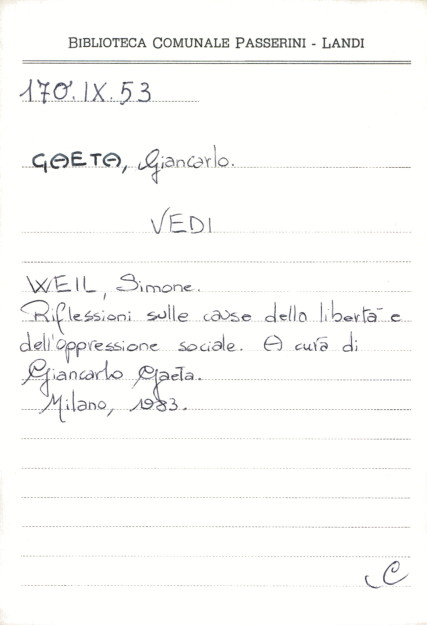 BIBLIOTECA COMUNALE PASSERINI - LANDI
170.IX.53
GAETA, Giancarlo.
VEDI
WEIL, Simone.
Riflessioni sulle cause dello libertà e
dell'oppressione sociale. A cura di
Giancarlo Gaeta.
Milano, 1983.
C